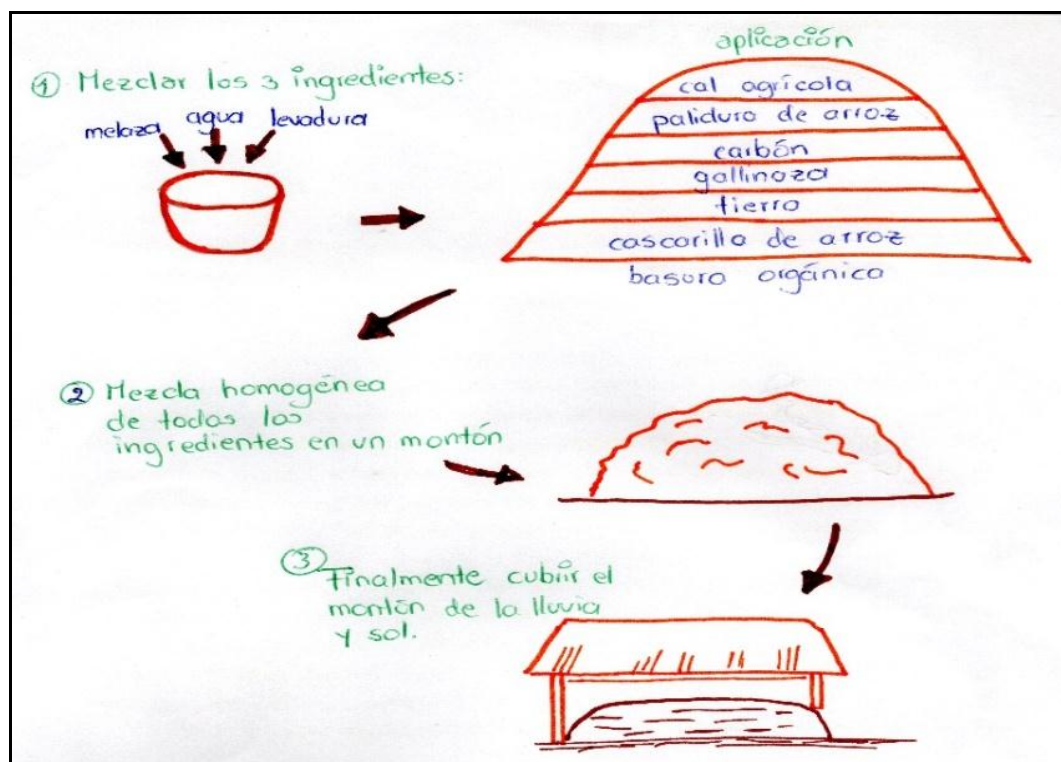 ① Mezclar los 3 ingredientes:
melaza agua levadura
aplicación
cal agrícola
paliduro de arroz
carbón
gallinaza
tierra
cascarilla de arroz
basura orgánica
② Mezcla homogénea
de todos los
ingredientes en un montón
③ Finalmente cubrir el
montón de la lluvia
y sol.